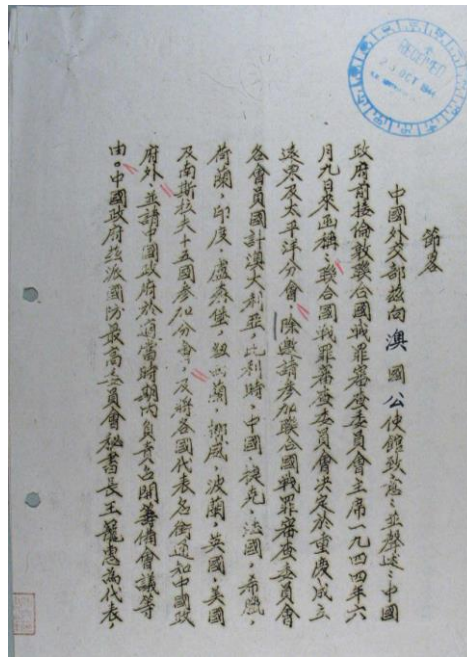 節略
中國外交部茲向澳國公使館致意，並聲述：中國
政府前接倫敦聯合國戰罪審查委員會主席一九四四年六
月九日來函稱：聯合國戰罪審查委員會決定於重慶成立
遠東及太平洋分會，除邀請參加聯合國戰罪審查委員會
各會員國計澳大利亞，比利時，中國，捷克，法國，希臘，
荷蘭，印度，盧森堡，紐西蘭，挪威，波蘭，英國，美國
及南斯拉夫十五國參加分會，及將各國代表名銜通知中國政
府外，並請中國政府於適當時期內負責召開籌備會議等
由。中國政府經派國防最高委員會秘書長王寵惠為代表，
RECEIVED
23 OCT 1944